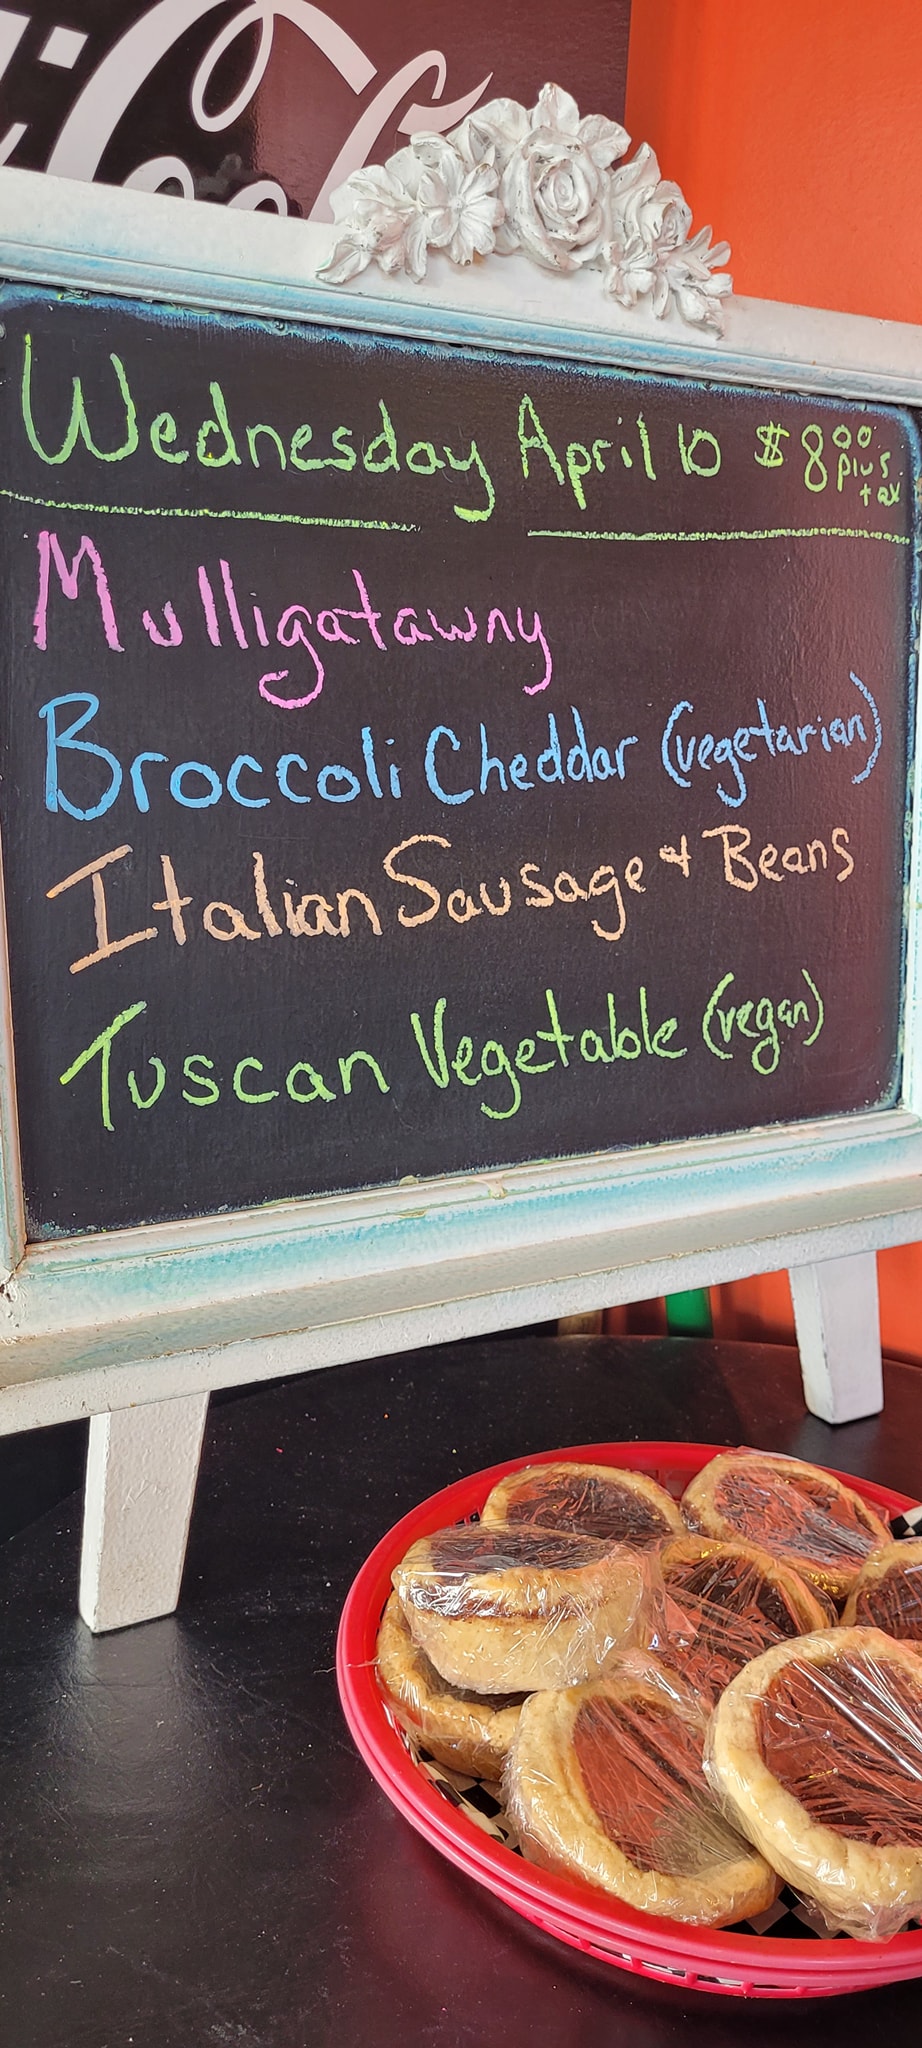 Coca
Wednesday April 10 $8.00 plus tax
Mulligatawny
Broccoli Cheddar (vegetarian)
Italian Sausage & Beans
Tuscan Vegetable (vegan)